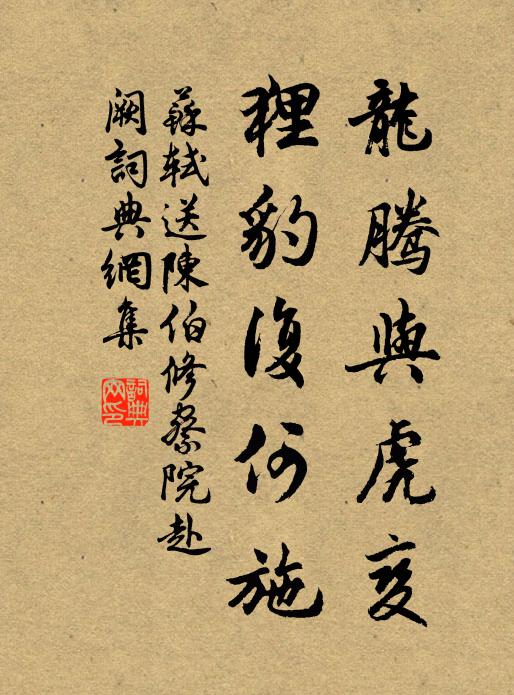 龍騰與虎変
狸豹復何施
蘇軾送陳伯修察院赴
闕詞典網集
詞典